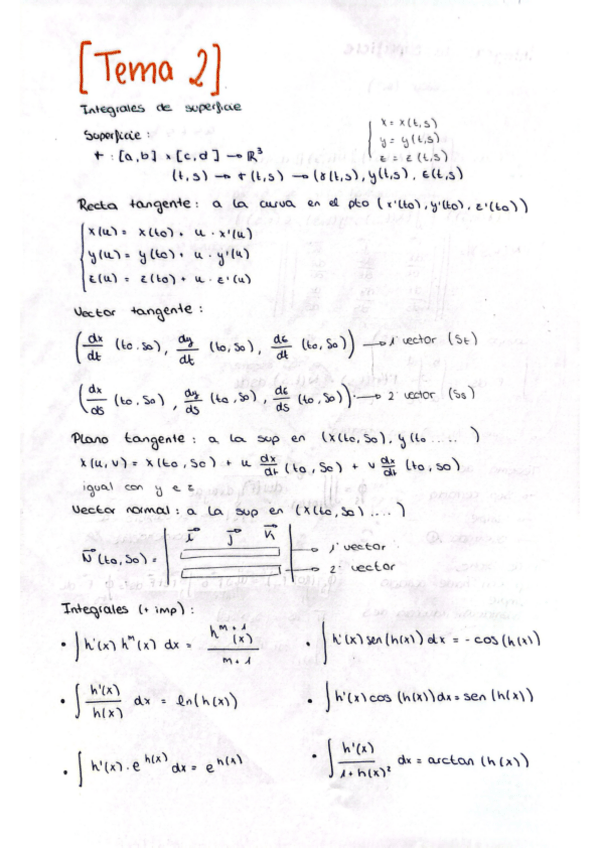 [Tema 2]
Integrales de superficie
Superficie :
x = x(t,s)
y = y(t,s)
z = z(t,s)
r : [a,b] x [c,d] → R³
(t,s) → r(t,s) → (x(t,s), y(t,s), z(t,s)
Recta tangente : a la curva en el pto (x'(to), y'(to), z'(to))
x(u) = x(to) + u · x'(u)
y(u) = y(to) + u · y'(u)
z(u) = z(to) + u · z'(u)
Vector tangente :
(dx/dt (to.so), dy/dt (to,so), dz/dt (to,so)) → 1 vector (St)
(dx/ds (to,so), dy/ds (to,so), dz/ds (to,so)) → 2 vector (Ss)
Plano tangente : a la sup en (x(to,so), y(to ..... )
x(u,v) = x(to,so) + u dx/dt (to,so) + v dx/dt (to,so)
igual con y e z
Vector normal : a la sup en (x(to,so) .... )
i j k
N (to,so) = | | → 1' vector
→ 2' vector
Integrales (+ imp) :
• ∫ h'(x) h^m(x) dx = h^(m+1)(x) / m+1
• ∫ h'(x) sen (h(x)) dx = - cos (h(x))
• ∫ h'(x)/h(x) dx = ln(h(x))
• ∫ h'(x) cos (h(x)) dx = sen (h(x))
• ∫ h'(x) · e^h(x) dx = e^h(x)
• ∫ h'(x) / 1+h(x)² dx = arctan (h(x))